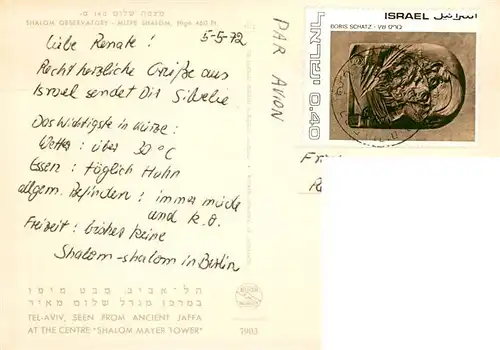 מצפה שלום 140 מ-
SHALOM OBSERVATORY - MITPE SHALOM, High 460 Ft.
5-5-72
Liebe Renate!
Recht herzliche Grüße aus
Israel sendet Dir
Das Wichtigste in Kürze:
Wetter: über 30°C
Essen: täglich Huhn
allgem. Befinden: immer müde
und k.o.
Freizeit: bisher keine
Shalom-shalom in Berlin
PAR AVION
ISRAEL اسرائيل
BORIS SCHATZ • בוריס שץ
ישראל 0.40
תל-אביב, מבט מיפו
במרכז מגדל שלום מאיר
TEL-AVIV, SEEN FROM ANCIENT JAFFA
AT THE CENTRE "SHALOM MAYER TOWER"
7903